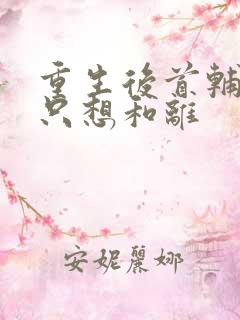 重生後首輔
只想和離
安妮麗娜